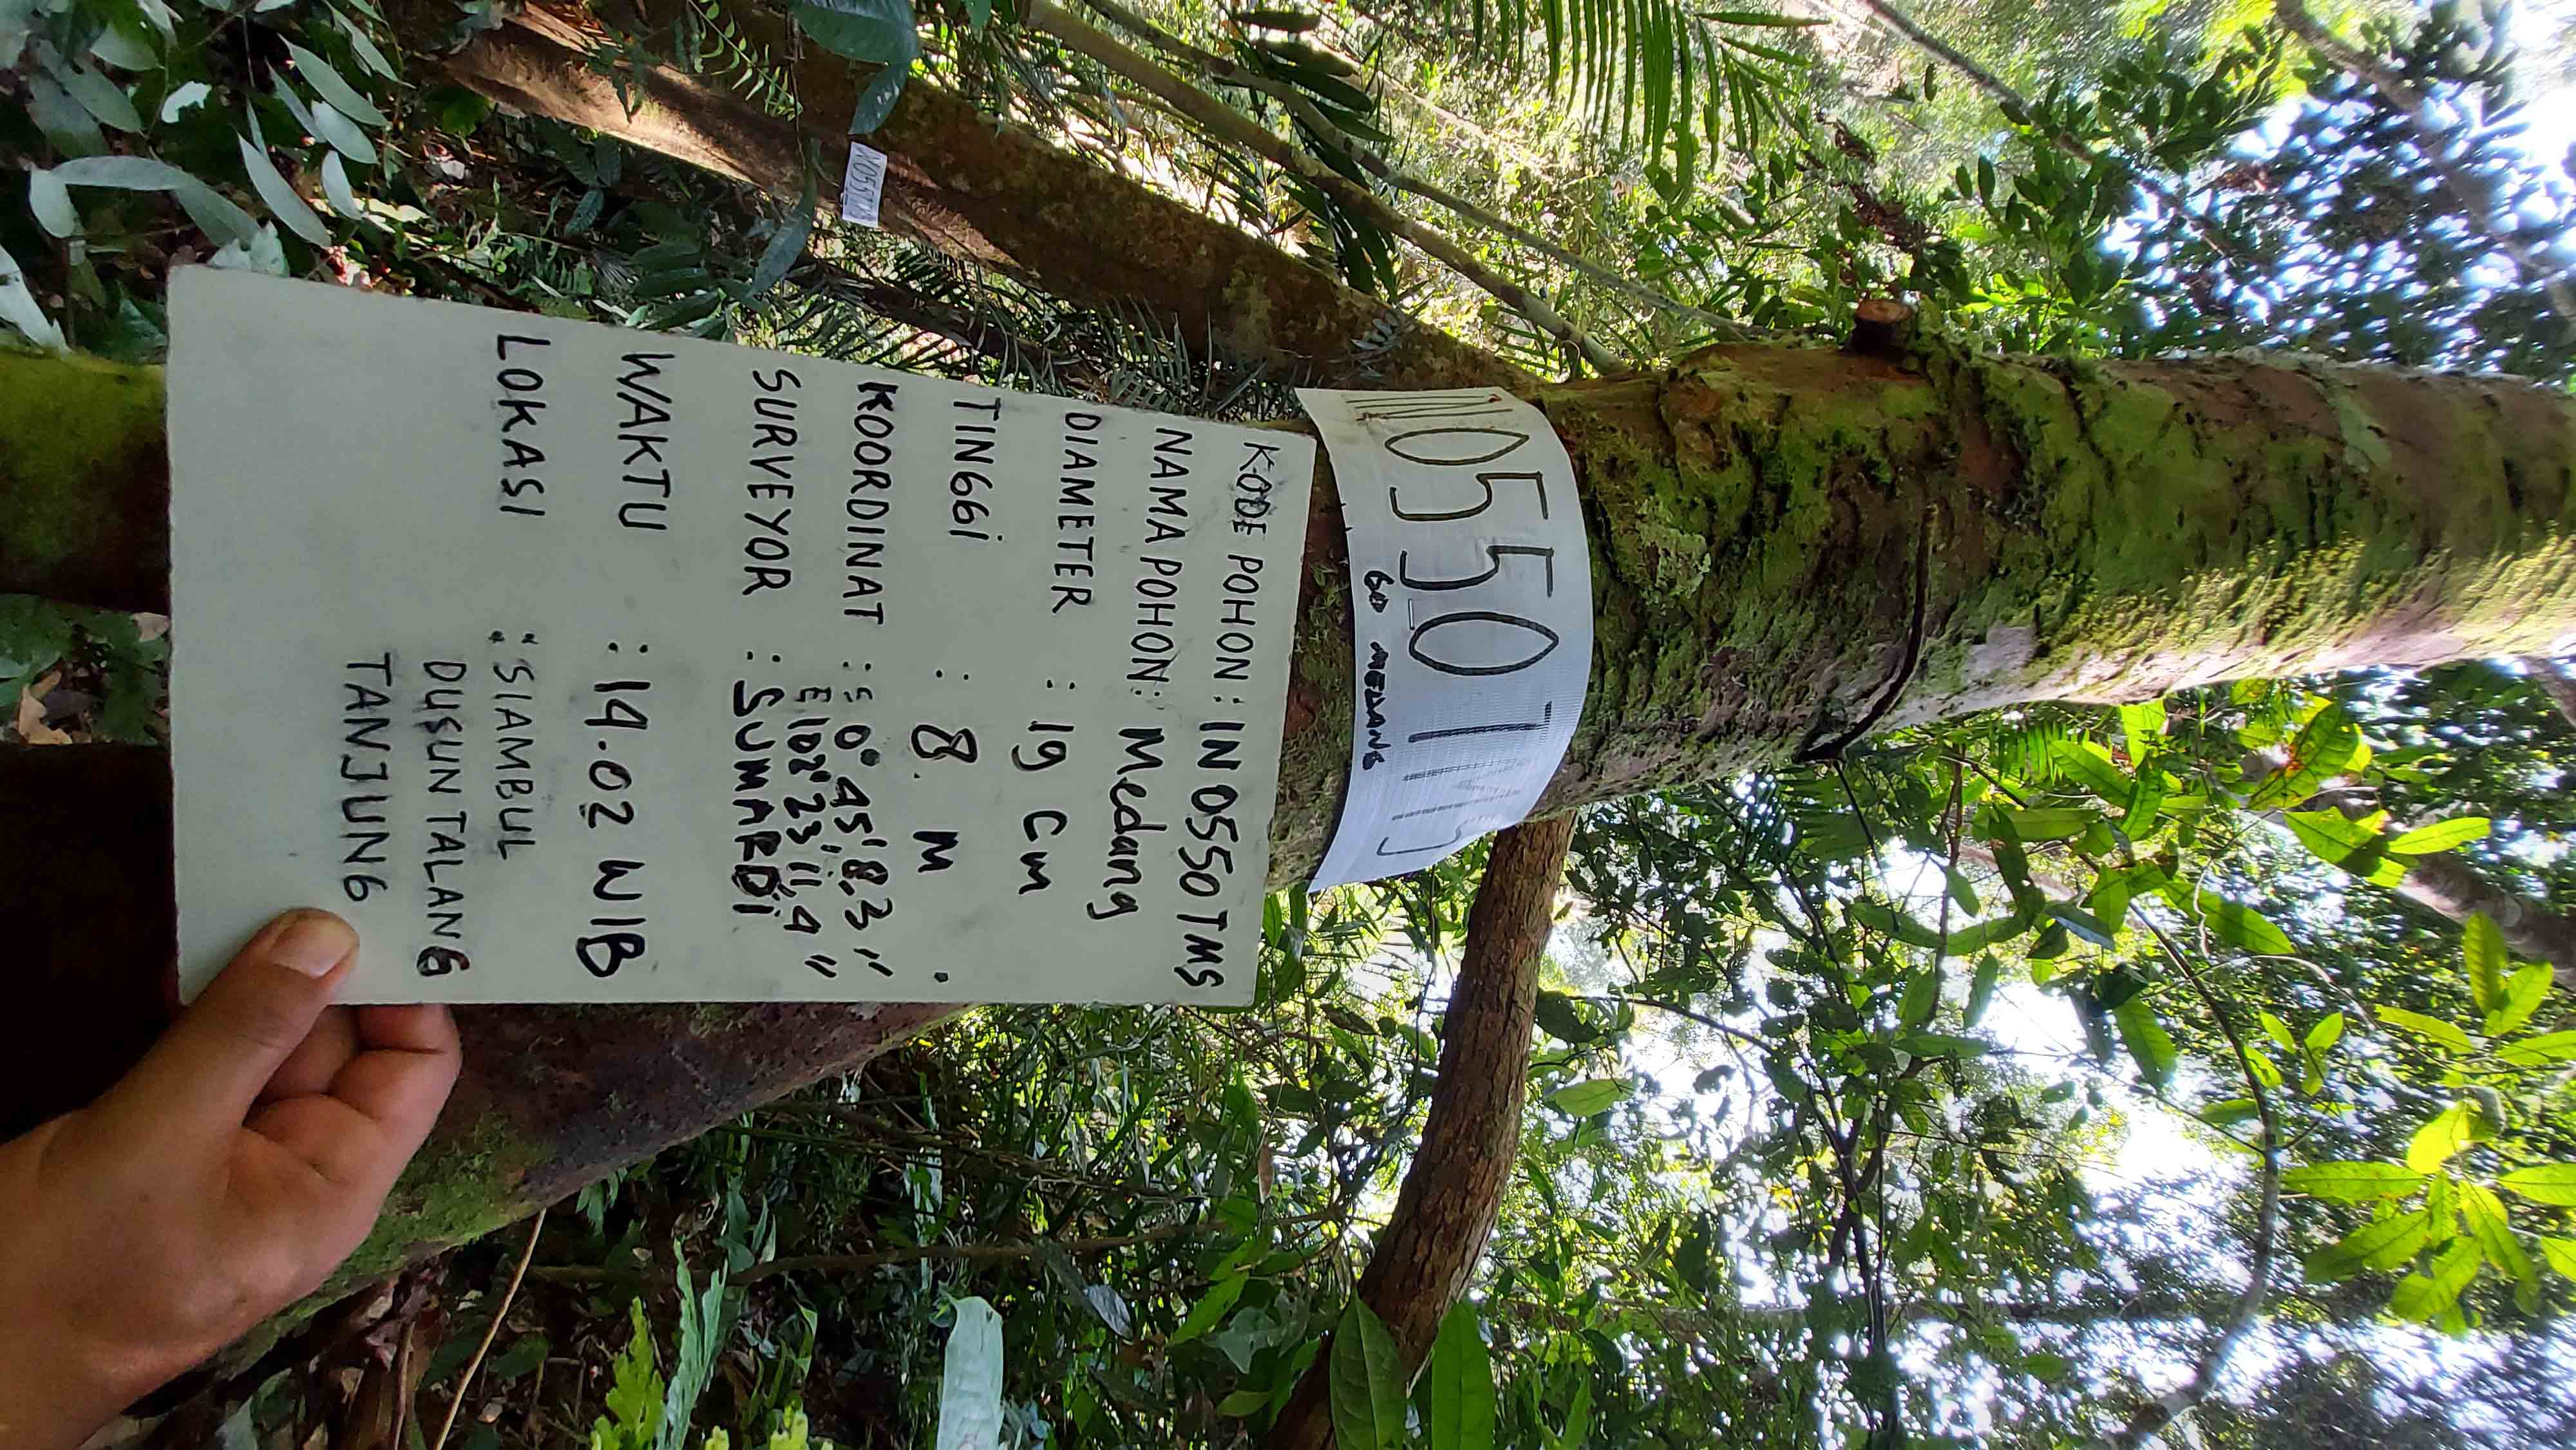 IN0550TMS
GD MEDANG
KODE POHON : IN 0550 TMS
NAMA POHON : Medang
DIAMETER : 19 Cm
TINGGi : 8. M
KOORDINAT : S 0° 45' 8,3 "
E 102° 23' 11,4 "
SURVEYOR : SUMARDi
WAKTU : 14.02 WIB
LOKASI : SIAMBUL
DUSUN TALANG
TANJUNG